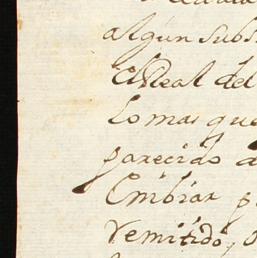 algun subs
el Real del
lo mas que
parecido a
Embiar p
remitido, o